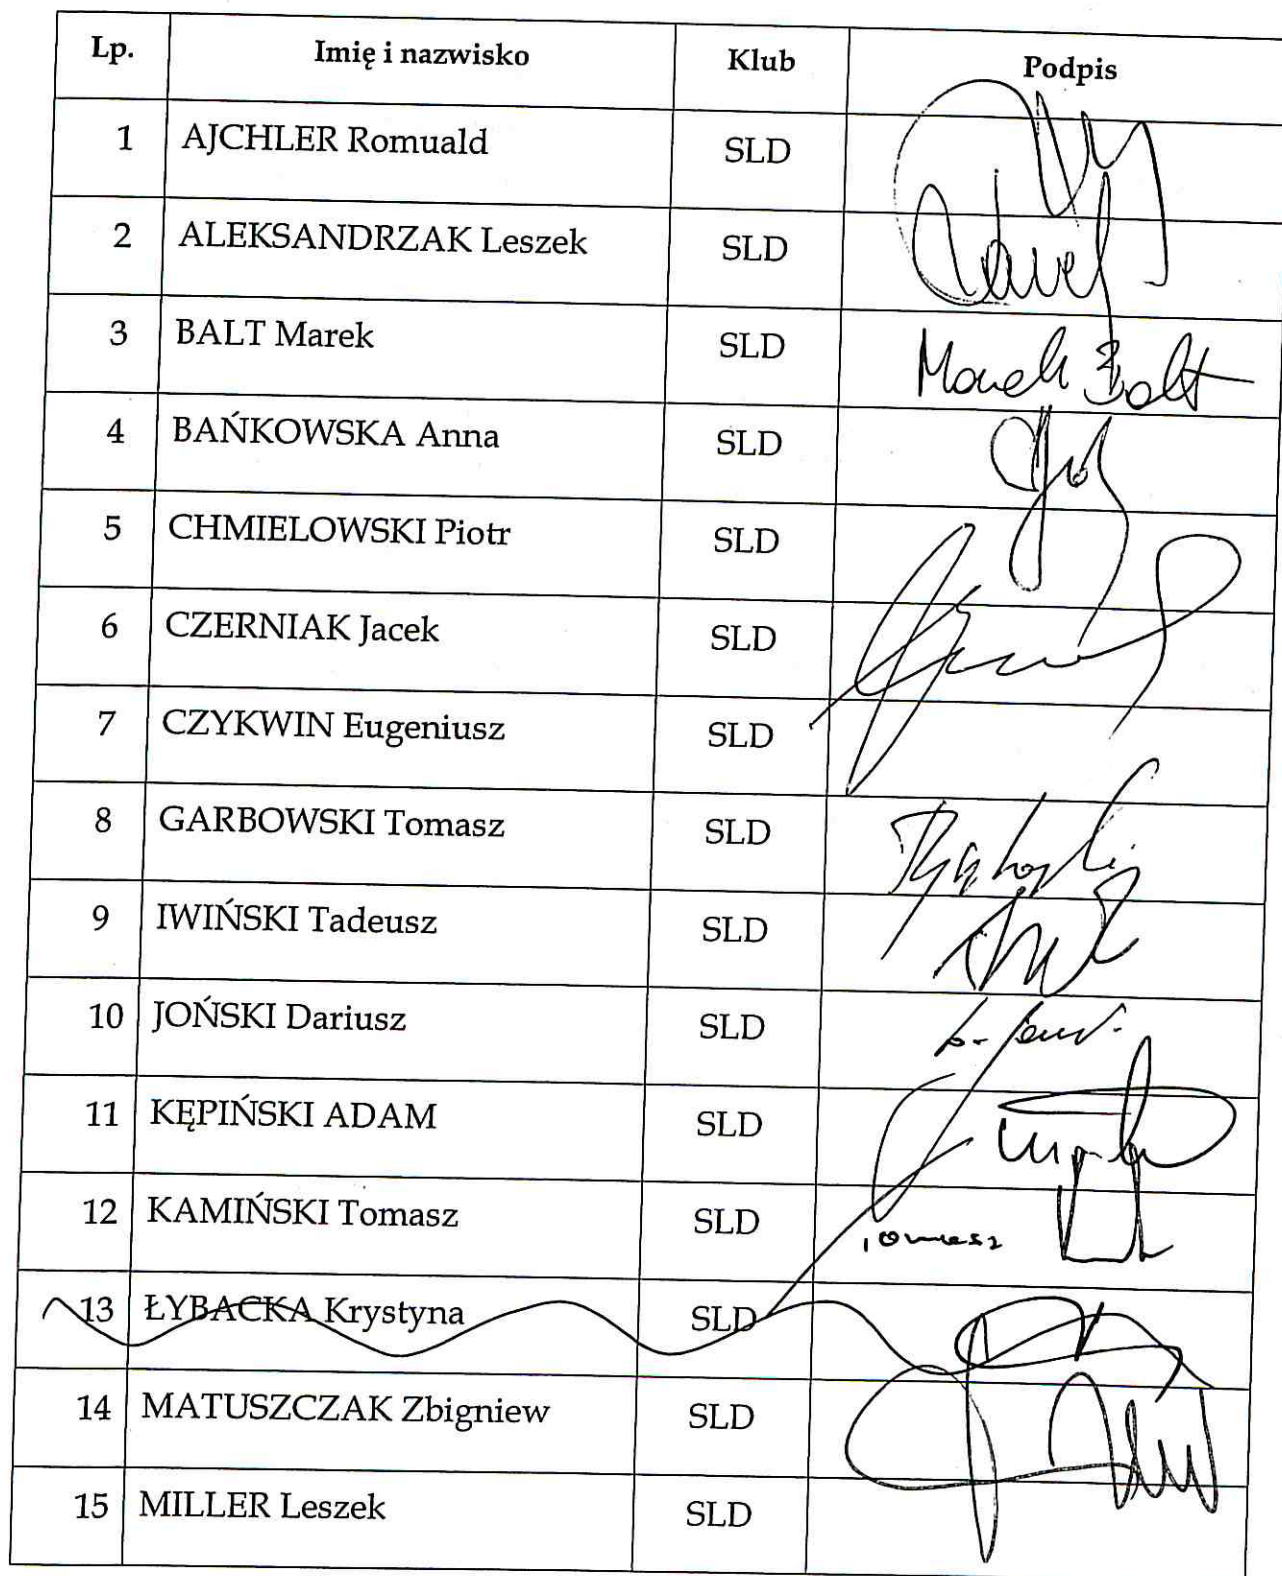 Lp. Imię i nazwisko Klub Podpis
1 AJCHLER Romuald SLD
2 ALEKSANDRZAK Leszek SLD
3 BALT Marek SLD Marek Balt
4 BAŃKOWSKA Anna SLD
5 CHMIELOWSKI Piotr SLD
6 CZERNIAK Jacek SLD
7 CZYKWIN Eugeniusz SLD
8 GARBOWSKI Tomasz SLD
9 IWIŃSKI Tadeusz SLD
10 JOŃSKI Dariusz SLD
11 KĘPIŃSKI ADAM SLD
12 KAMIŃSKI Tomasz SLD Tomasz
13 ŁYBACKA Krystyna SLD
14 MATUSZCZAK Zbigniew SLD
15 MILLER Leszek SLD